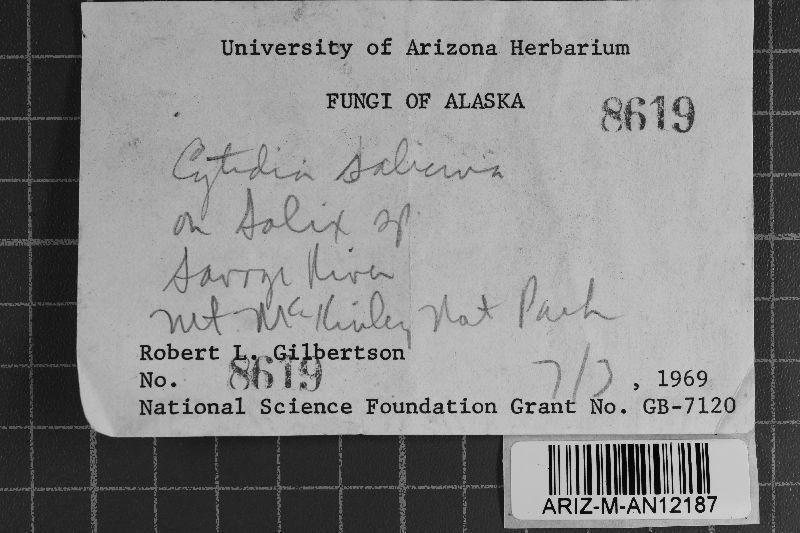 University of Arizona Herbarium
FUNGI OF ALASKA
8619
Cytidia salicina
on Salix sp.
Savage River
Mt McKinley Nat Park
Robert L. Gilbertson
No. 8619
7/3, 1969
National Science Foundation Grant No. GB-7120
ARIZ-M-AN12187